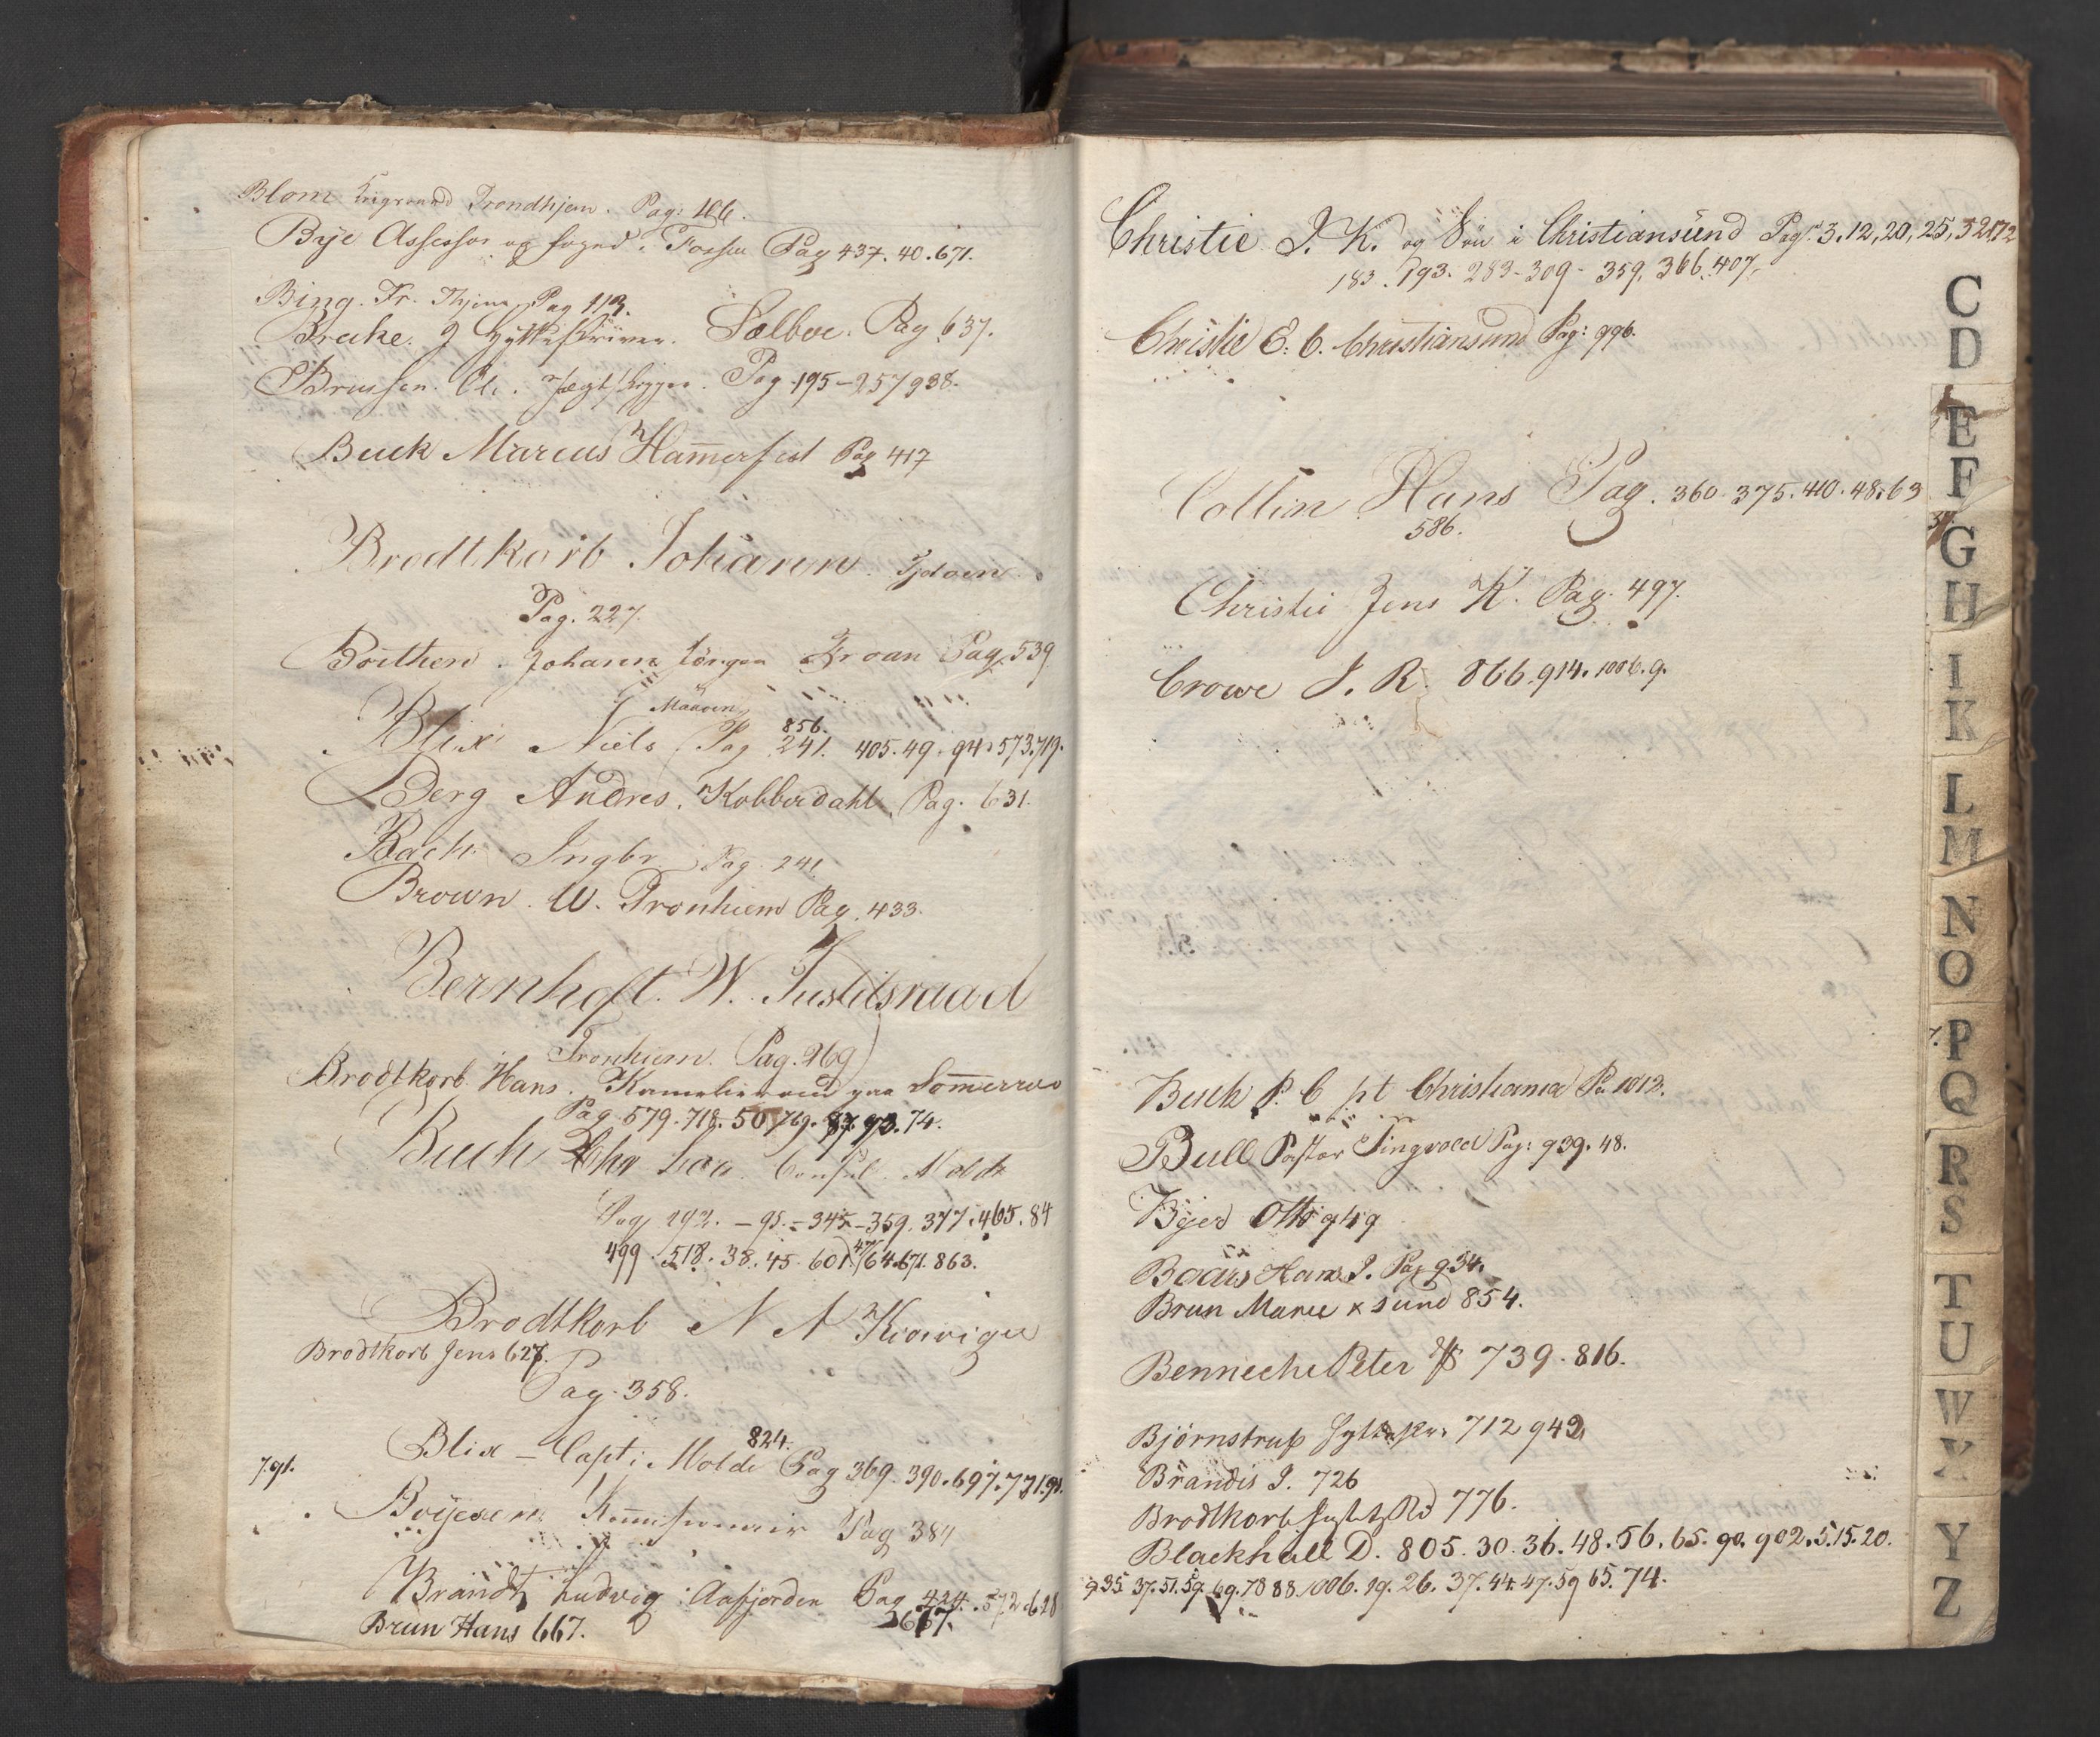 Blom Trondhjem. Pag: 166.
Bye Assessor og foged i Fossen Pag 437. 40. 671.
Bing. Fr. Pag 113.
Brecke. J Hytteskriver. Sælboe. Pag 637.
Brussen. Ole. Jægtskipper. Pag 195-257 938.
Buck Marcus Ham̄erfest Pag 417
Brodtkorb Johann. Tjötöen
Pag. 227.
Böithen. Johann Jörgen Pag. 539
Maasöen
856.
Blix Niels Pag 241. 405. 49. 94. 573. 719.
Berg Andres. Kobberdahl. Pag. 631.
Bach Ingbr. Pag. 241.
Brown. W. Tronhiem Pag. 433.
Bernhoft. W. Justitsraad
Tronhiem. Pag. 269
Brodtkorb Hans. Kamelieraad paa Som̄erroe
Pag. 579. 718. 50. 769. 87. 93. 74.
Buch Chr Consul. Molde
Pag 292. - 95. - 345 - 359. 377. 465. 84
499. 518. 38. 45. 601. 47/64. 671. 863.
Brodtkorb N A Kiervigen
Brodtkorb Jens 627.
Pag. 358.
824.
791. Blix - Capt: Molde Pag 369. 390. 697. 721. 91.
Boyesen Kom̄issionair Pag 384
Brandt Ludvig Aafjorden Pag 424. 572. 628
Brun Hans 667. 2667.
Christie J. K. og Sön i Christiansünd Pag. 3. 12, 20, 25, 32, 172
183. 193. 283 - 309 - 359. 366. 407.
Christie E. C. Christiansund Pag: 996.
Collin Hans Pag. 360. 375. 410. 48. 63
586.
Christie Jens K. Pag. 497.
Crowe J. R. 866. 914. 1006. 9.
Buck P. C pt Christiania Pa 1012.
Bull Pastor Tingvold Pag: 939. 48.
Byer Otto 949
Baars Hans J. Pag 954.
Brun Marie x sund 854.
Benneche Peter 739. 816.
Björnstrup 712 942
Brandis J. 726
Brodtkorb 776.
Blackhall D. 805. 30. 36. 48. 56. 65. 90. 902. 5. 15. 20.
935 37. 51. 59. 69. 78 88. 1006. 19. 26. 37. 44. 47. 59 65. 74.
C
D
E
F
G
H
I
K
L
M
N
O
P
Q
R
S
T
U
W
X
Y
Z